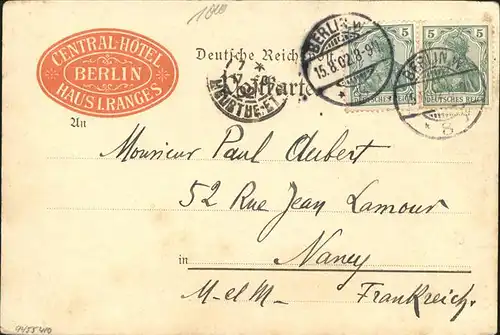 1000
CENTRAL-HÔTEL
BERLIN
HAUS I. RANGES
Deutsche Reich
Postkarte
BERLIN.W.
15.8.02.8-9V.
5 5
DEUTSCHES REICH
BERLIN W.
* 8
MEURTHE-ET
An
Monsieur Paul Aubert
52 Rue Jean Lamour
in Nancy
M-et-M- Frankreich.